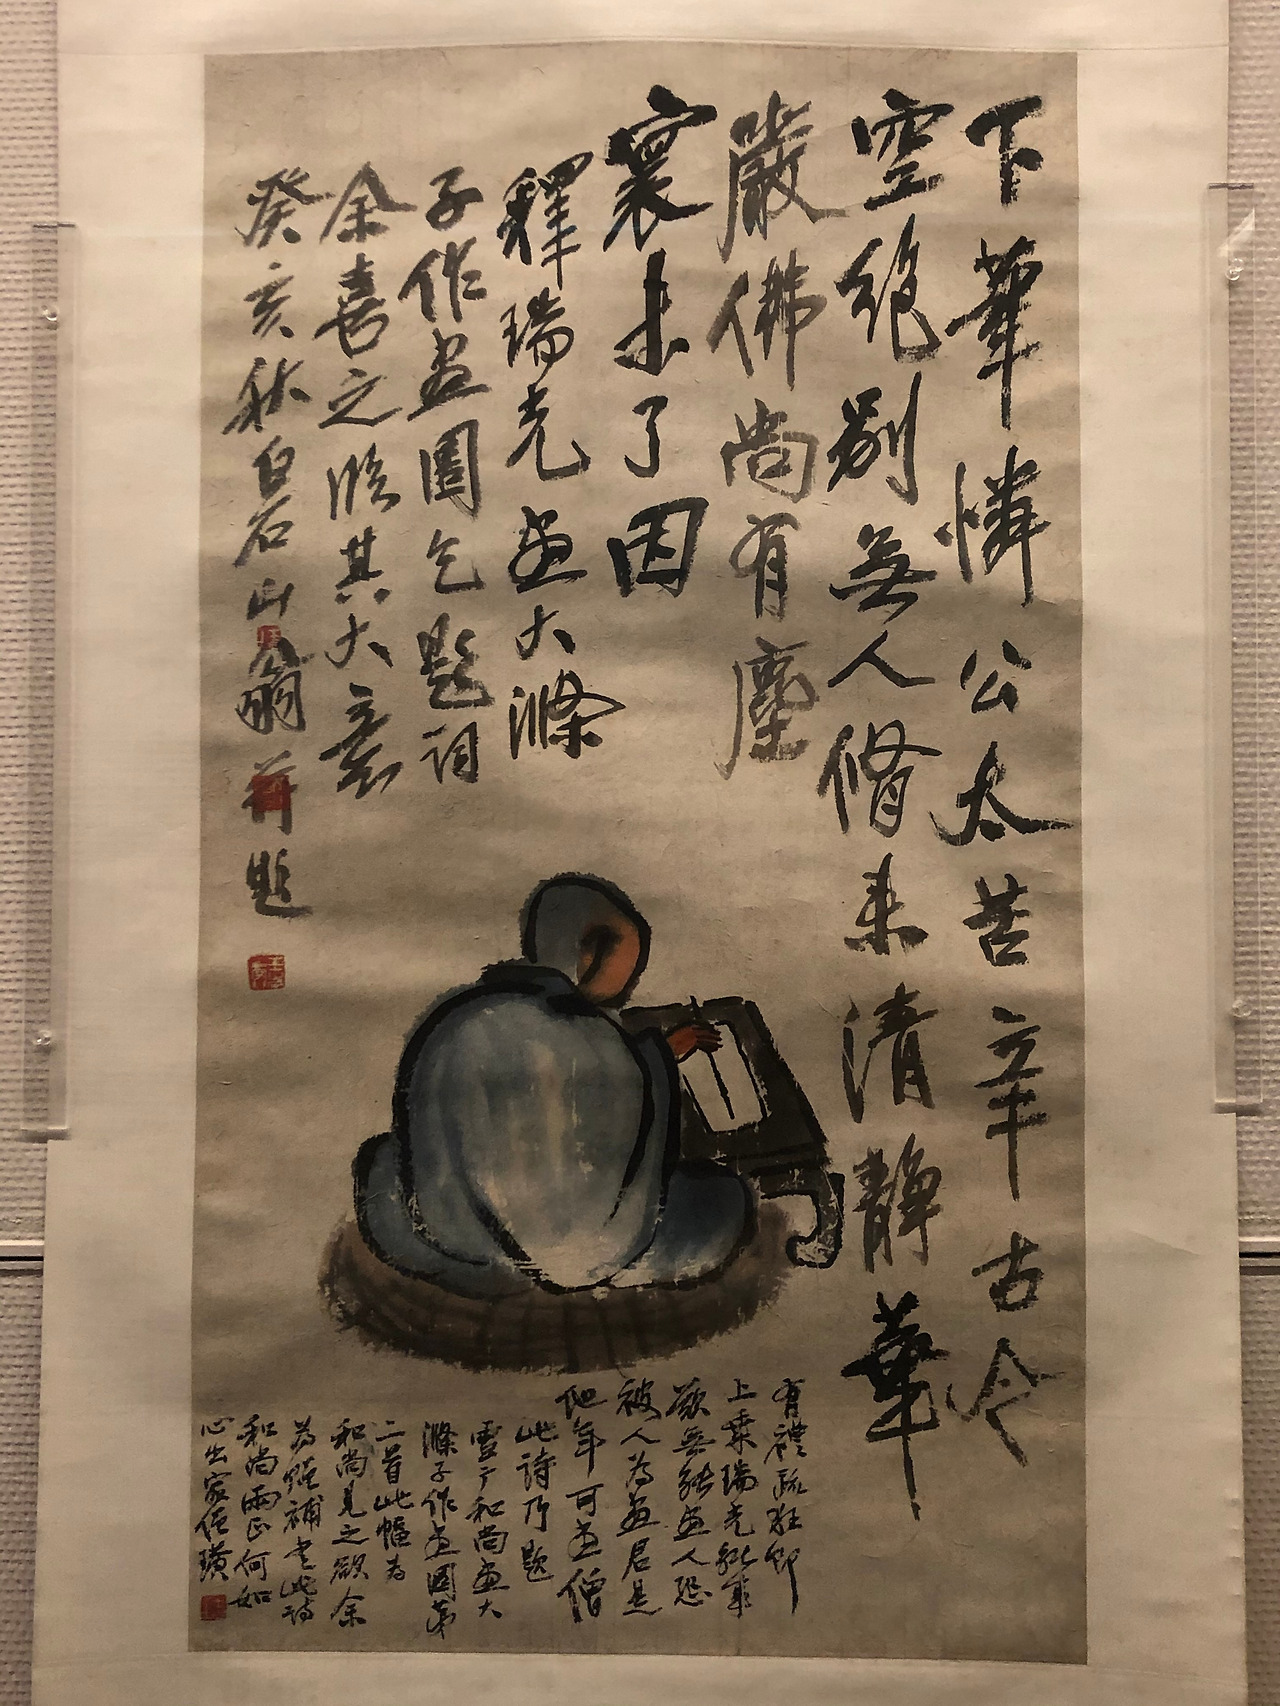 下筆憐公太苦辛古今
空絕別無人脩來清靜華
嚴佛尚有塵
寰未了因
釋瑞光画大滌
子作畫圖乞題詞
余喜之臨其大意
癸亥秋白石山翁并題
有禮疏狂即
上乘瑞光
欲無能画人恐
被人為画君是
他年可画僧
此詩乃題
雪广和尚画大
滌子作画圖第
二首此幅為
和尚見之欲余
為 補書此詩
和尚雨正何如
心出家僧璜